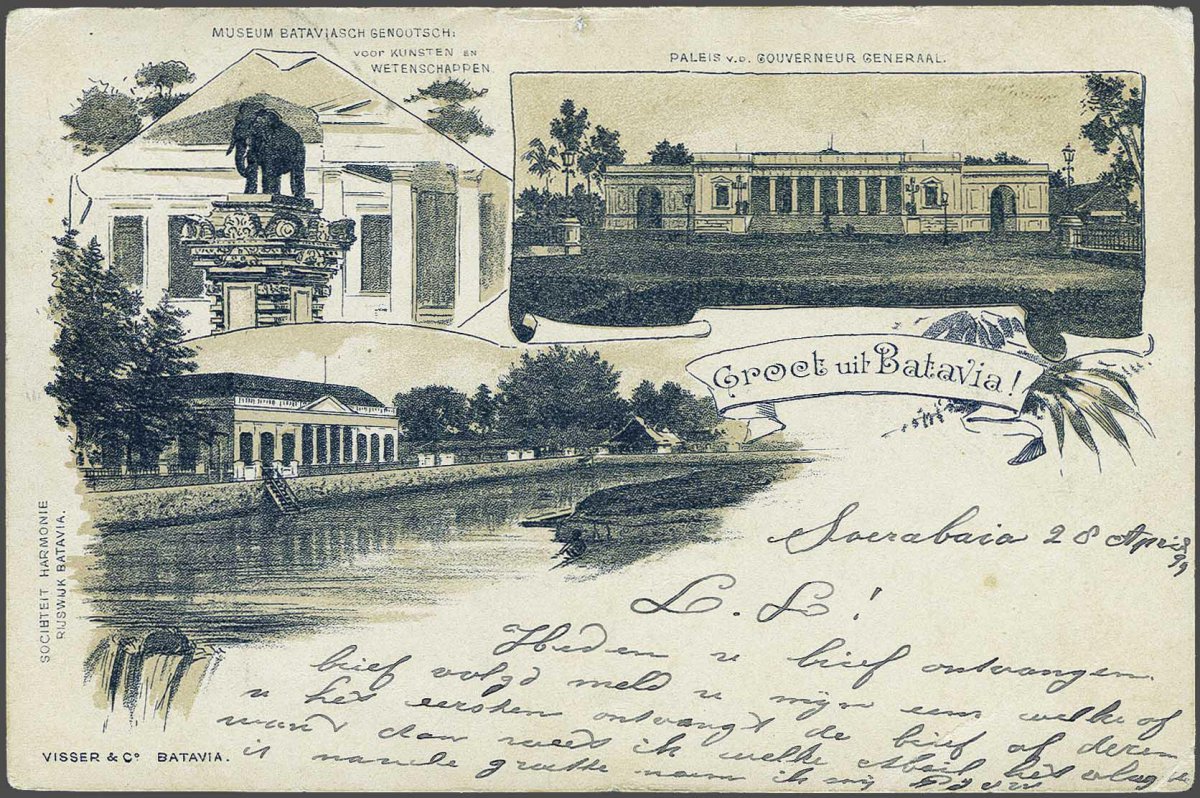 MUSEUM BATAVIASCH GENOOTSCH:
VOOR KUNSTEN EN
WETENSCHAPPEN
PALEIS v.d. GOUVERNEUR GENERAAL.
Groet uit Batavia!
SOCIHTEIT HARMONIE
RIJSWIJK BATAVIA.
Soerabaia 28 April
99
L. L!
Heden u brief ontvangen.
brief volgd meld u mijn een welke of
u het eersten ontvangt de brief of deren
want dan weet ik welke het vlug
is groete
VISSER & Co BATAVIA.